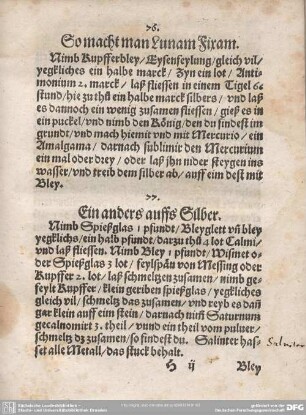 76.
So macht man Lunam Fixam.
Nimb Kupfferbley / Eysenfeylung / gleich vil /
yegkliches ein halbe marck / Zyn ein lot / Anti-
monium 2. marck / laß fliessen in einem Tigel 6.
stund / hie zu thů ein halbe marck silbers / vnd laß
es dannoch ein wenig zusamen fliessen / gieß es in
ein puckel / vnd nimb den König / den du findest im
grundt / vnd mach hiemit vnd mit Mercurio / ein
Amalgama / darnach sublimir den Mercurium
ein mal oder drey / oder laß jhn nider steygen ins
wasser / vnd treib dem silber ab / auff eim dest mit
Bley.
77.
Ein anders auffs Silber.
Nimb Spießglas 1 pfundt / Bleyglett vñ bley
yegklichs / ein halb pfundt / dar zu thů 4 lot Calmi /
vnd laß fliessen. Nimb Bley 1 pfundt / Wismet o-
der Spießglas 3 lot / feylspän von Messing oder
Kupffer 2. lot / laß schmeltzen zusamen / nimb ge-
feylt Kupffer / klein geriben spießglas / yegkliches
gleich vil / schmeltz das zusamen / vnd reyb es dañ
gar klein auff eim stein / darnach nim̃ Saturnum
gecalnomirt 3. theil / vnnd ein theil vom pulver /
schmeltz dz zusamen / so findest du. Salinter has-
set alle Metall / das stuck behalt.
H ij
Bley